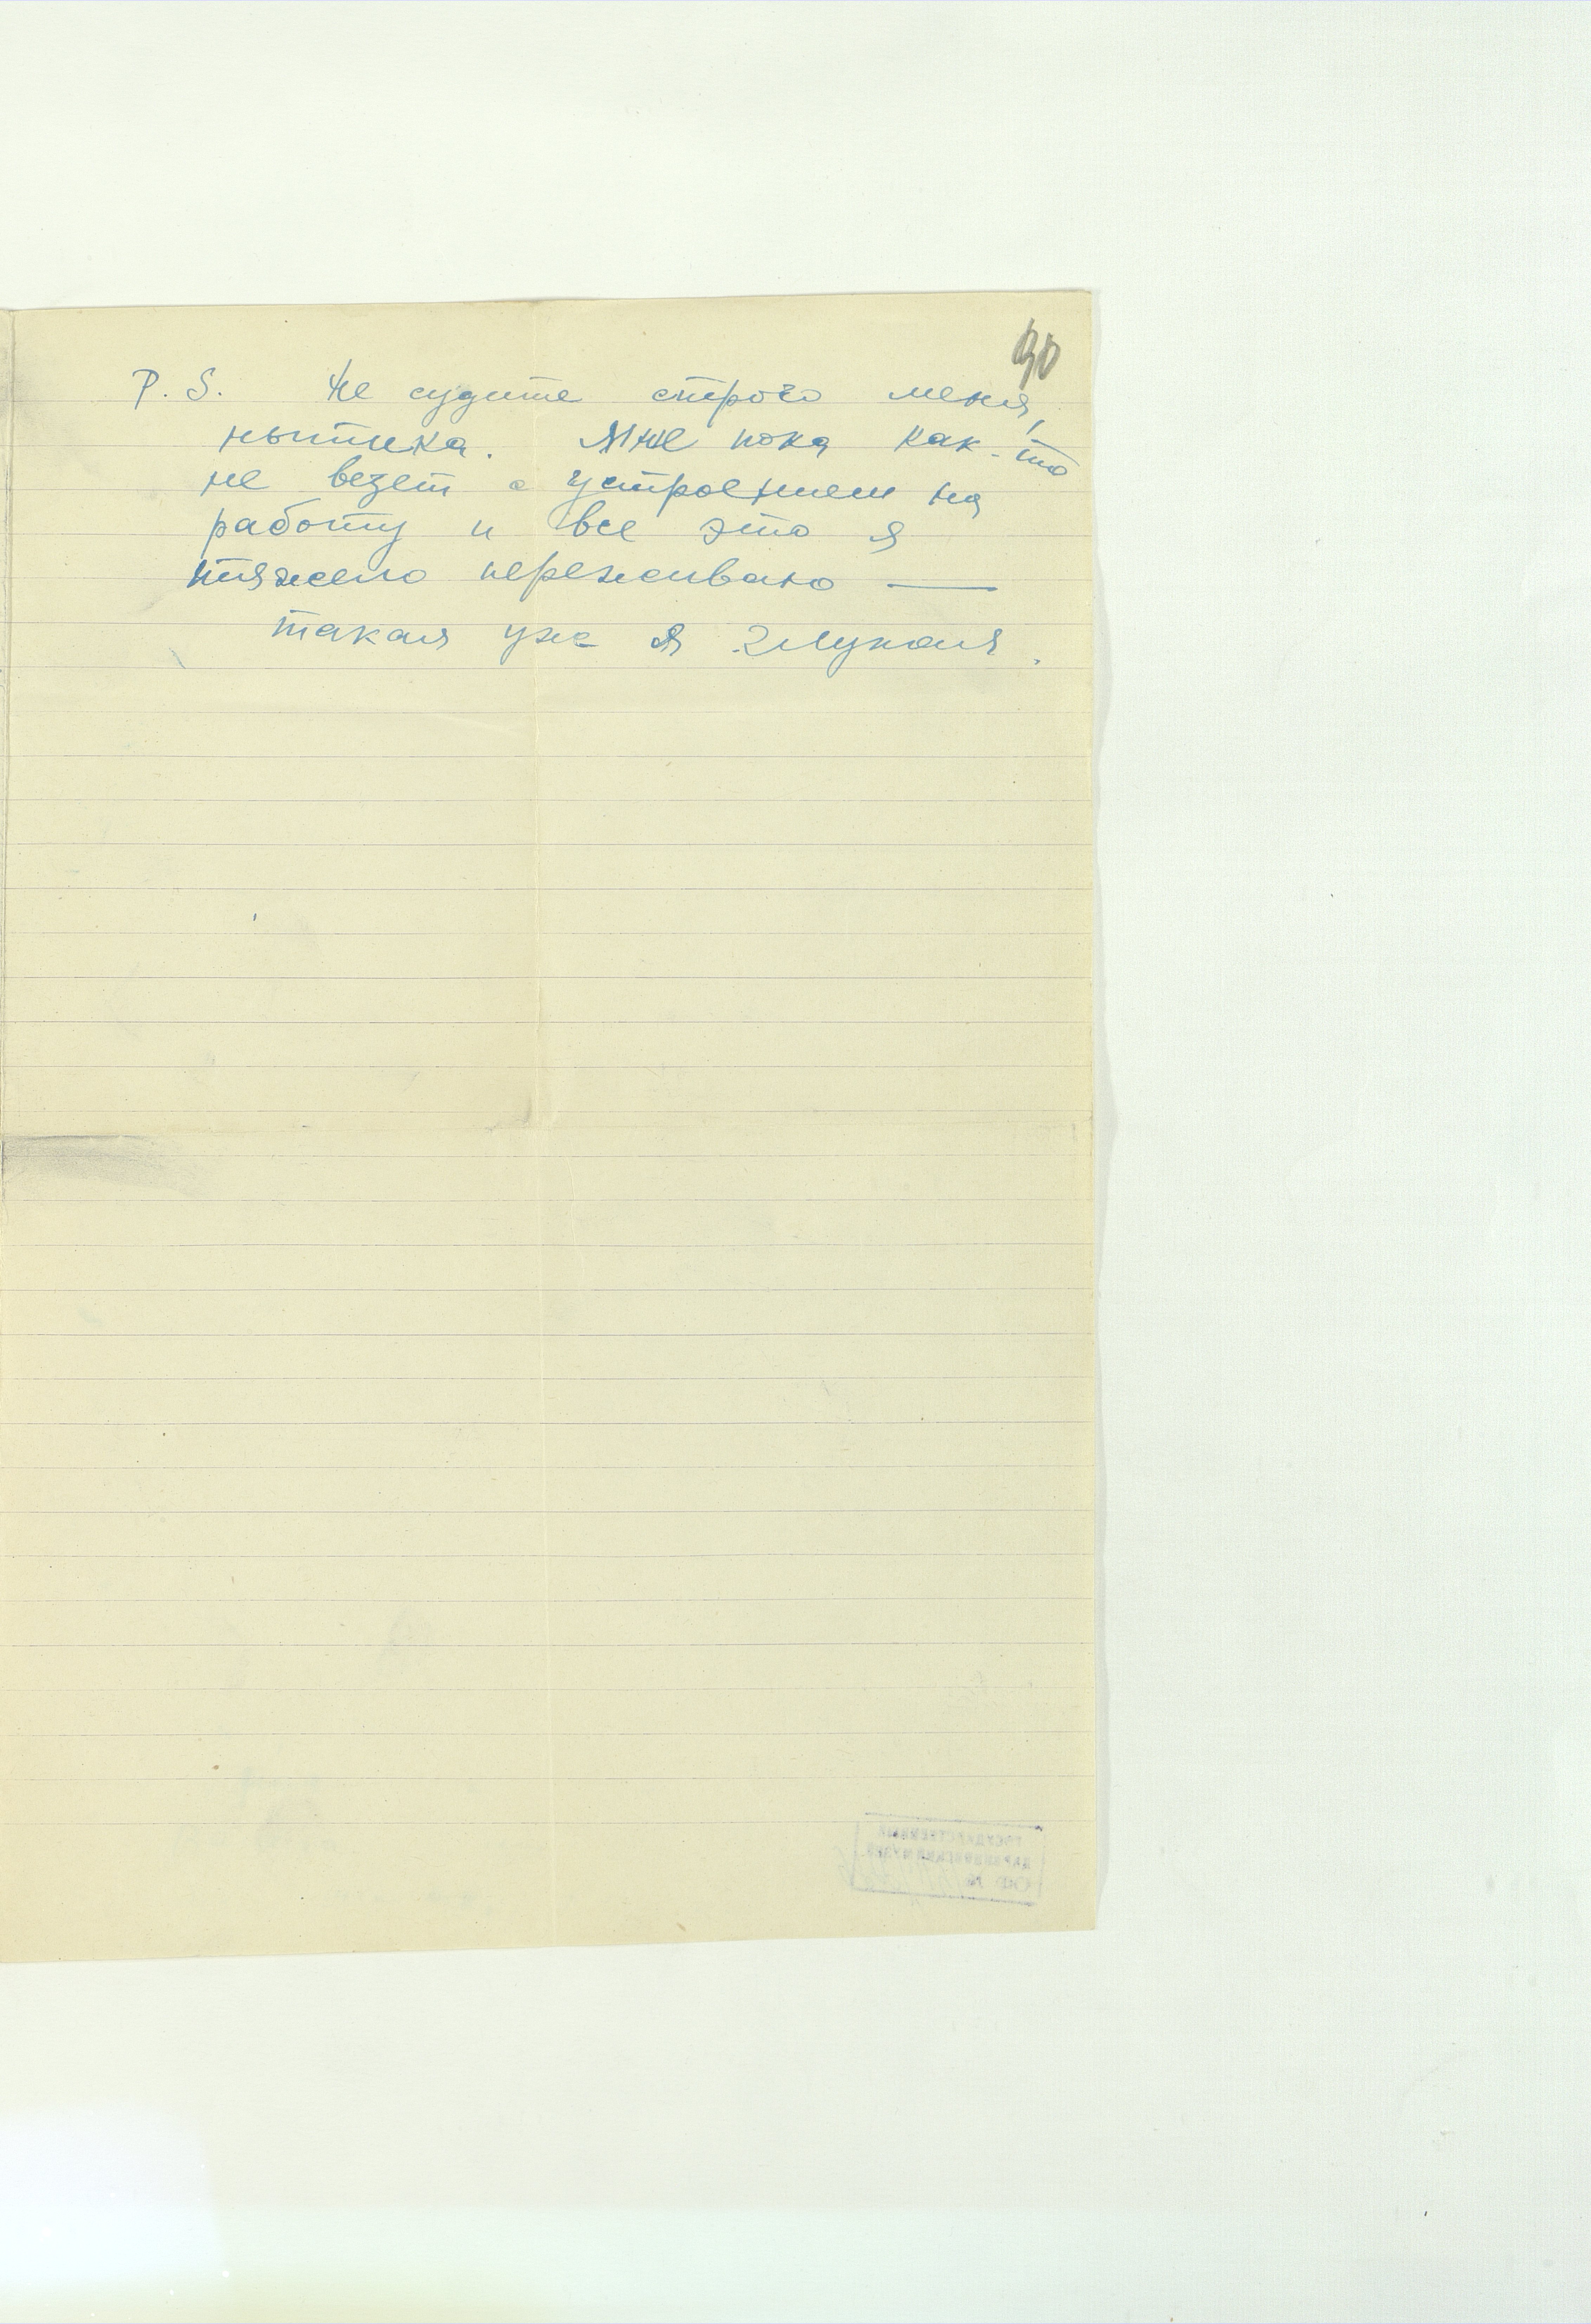 90
P.S. Не судите строго меня,
нытика. Мне пока как-то
не везет с устроением на
работу и все это я
тяжело переживаю —
такая уж я глупая.
ГОСУДАРСТВЕННЫЙ
ДАРВИНОВСКИЙ МУЗЕЙ
ОФ №